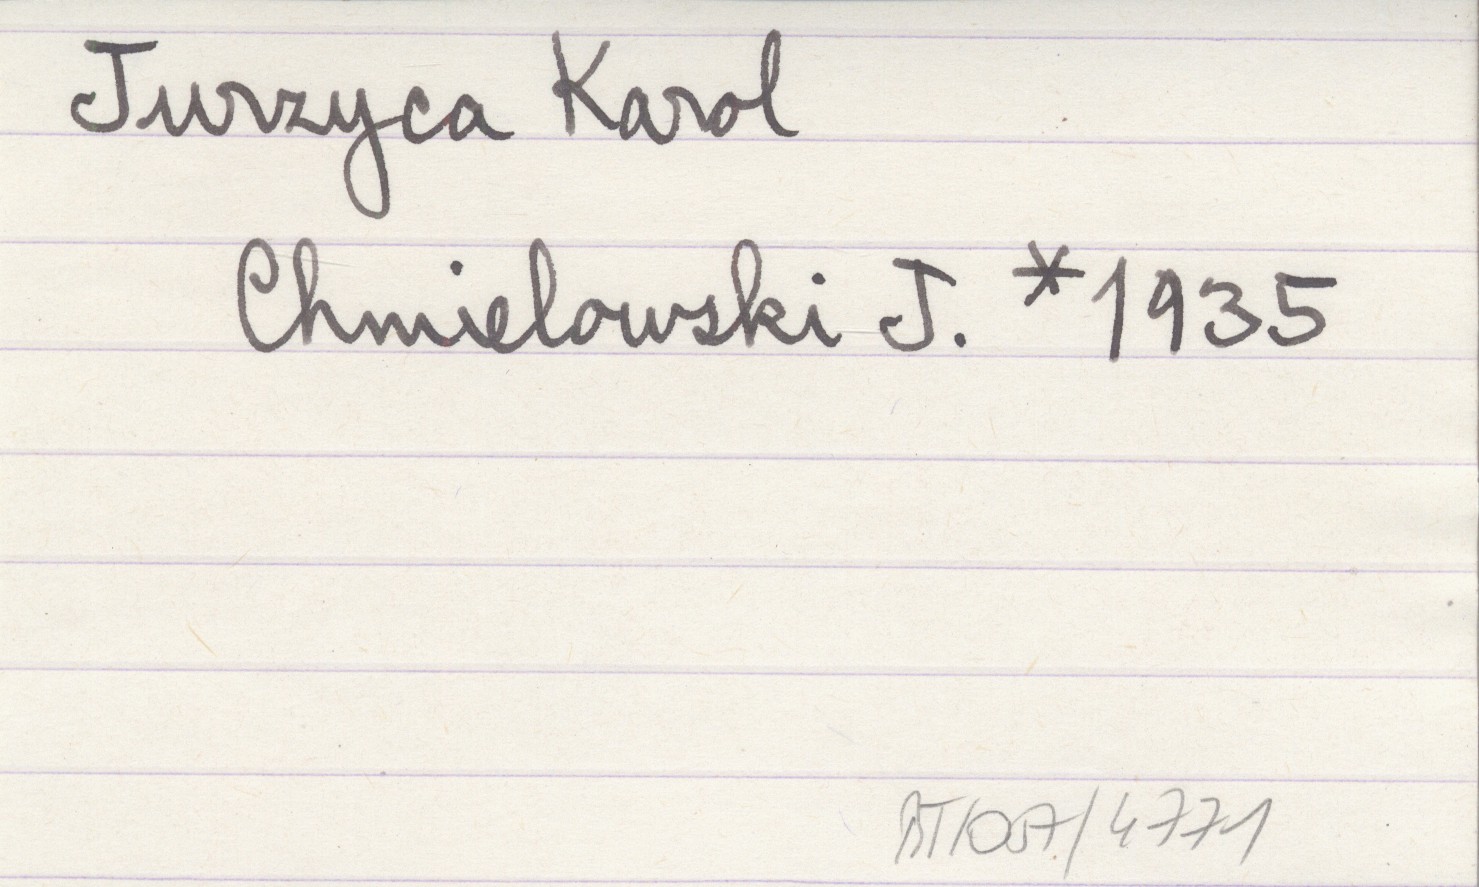 Jurzyca Karol
Chmielowski J. *1935
BT/057/4771